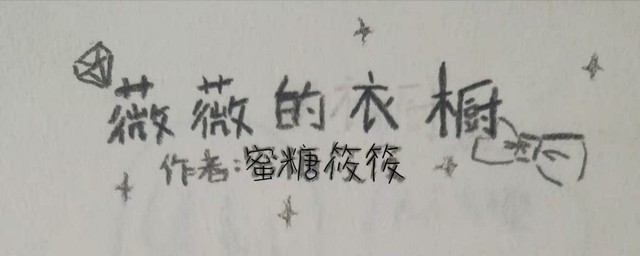 薇薇的衣橱
作者:蜜糖筱筱